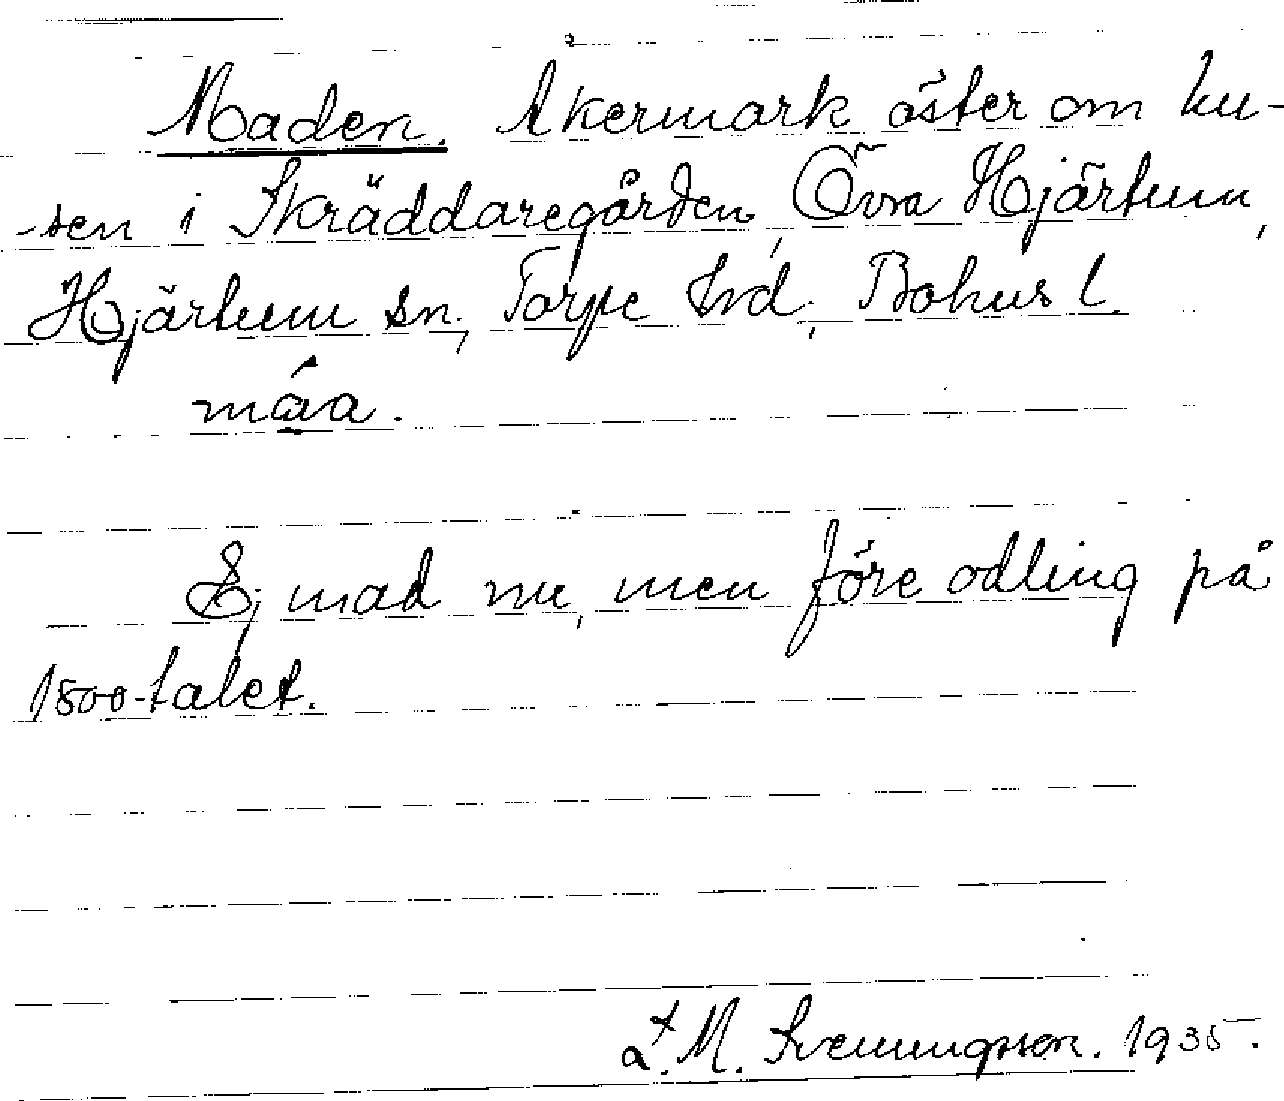 Maden. Åkermark öster om hu-
-sen i Skräddaregården, Övra Hjärtum,
Hjärtum sn, Torpe hrd, Bohus l.
måa.
Ej mad nu, men före odling på
1800-talet.
L. M. Svenungsson. 1935.